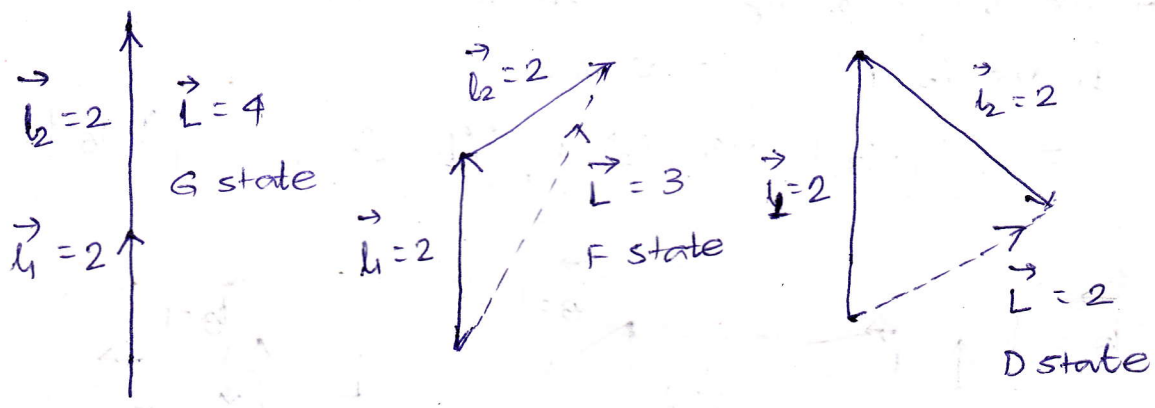 l⃗₂ = 2
L⃗ = 4
G state
l⃗₁ = 2
l⃗₂ = 2
L⃗ = 3
l⃗₁ = 2
F state
l⃗₂ = 2
l⃗₁ = 2
L⃗ = 2
D state